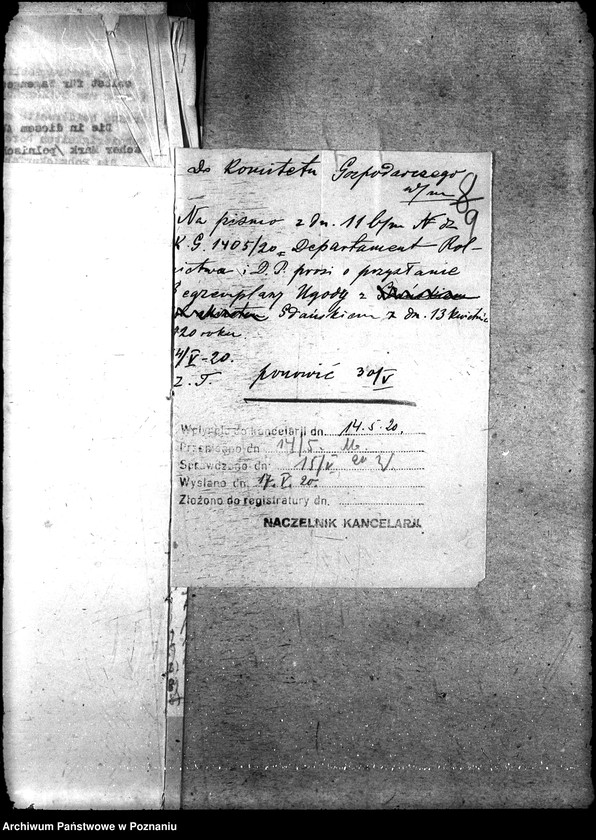 selbst für Wagenge
Die in diesem
scher Mark /polnisch
Do Komitetu Gospodarczego
w/m
8
9
Na pismo z dn. 11 b/m № dz
K.G. 1405/20 Departament Rol-
nictwa i D.P. prosi o przysłanie
egzemplarz Ugody z
Gdańskiem z dn. 13 kwietnia
920 roku.
14/V-20.
Z. T.
ponowić 30/V
Wpłynęło do kancelarji dn. 14.5.20.
Przepisano dn. 14/5.
Sprawdzono dn. 15/V
Wysłano dn. 17.V.20.
Złożono do registratury dn.
NACZELNIK KANCELARJI.
Archiwum Państwowe w Poznaniu